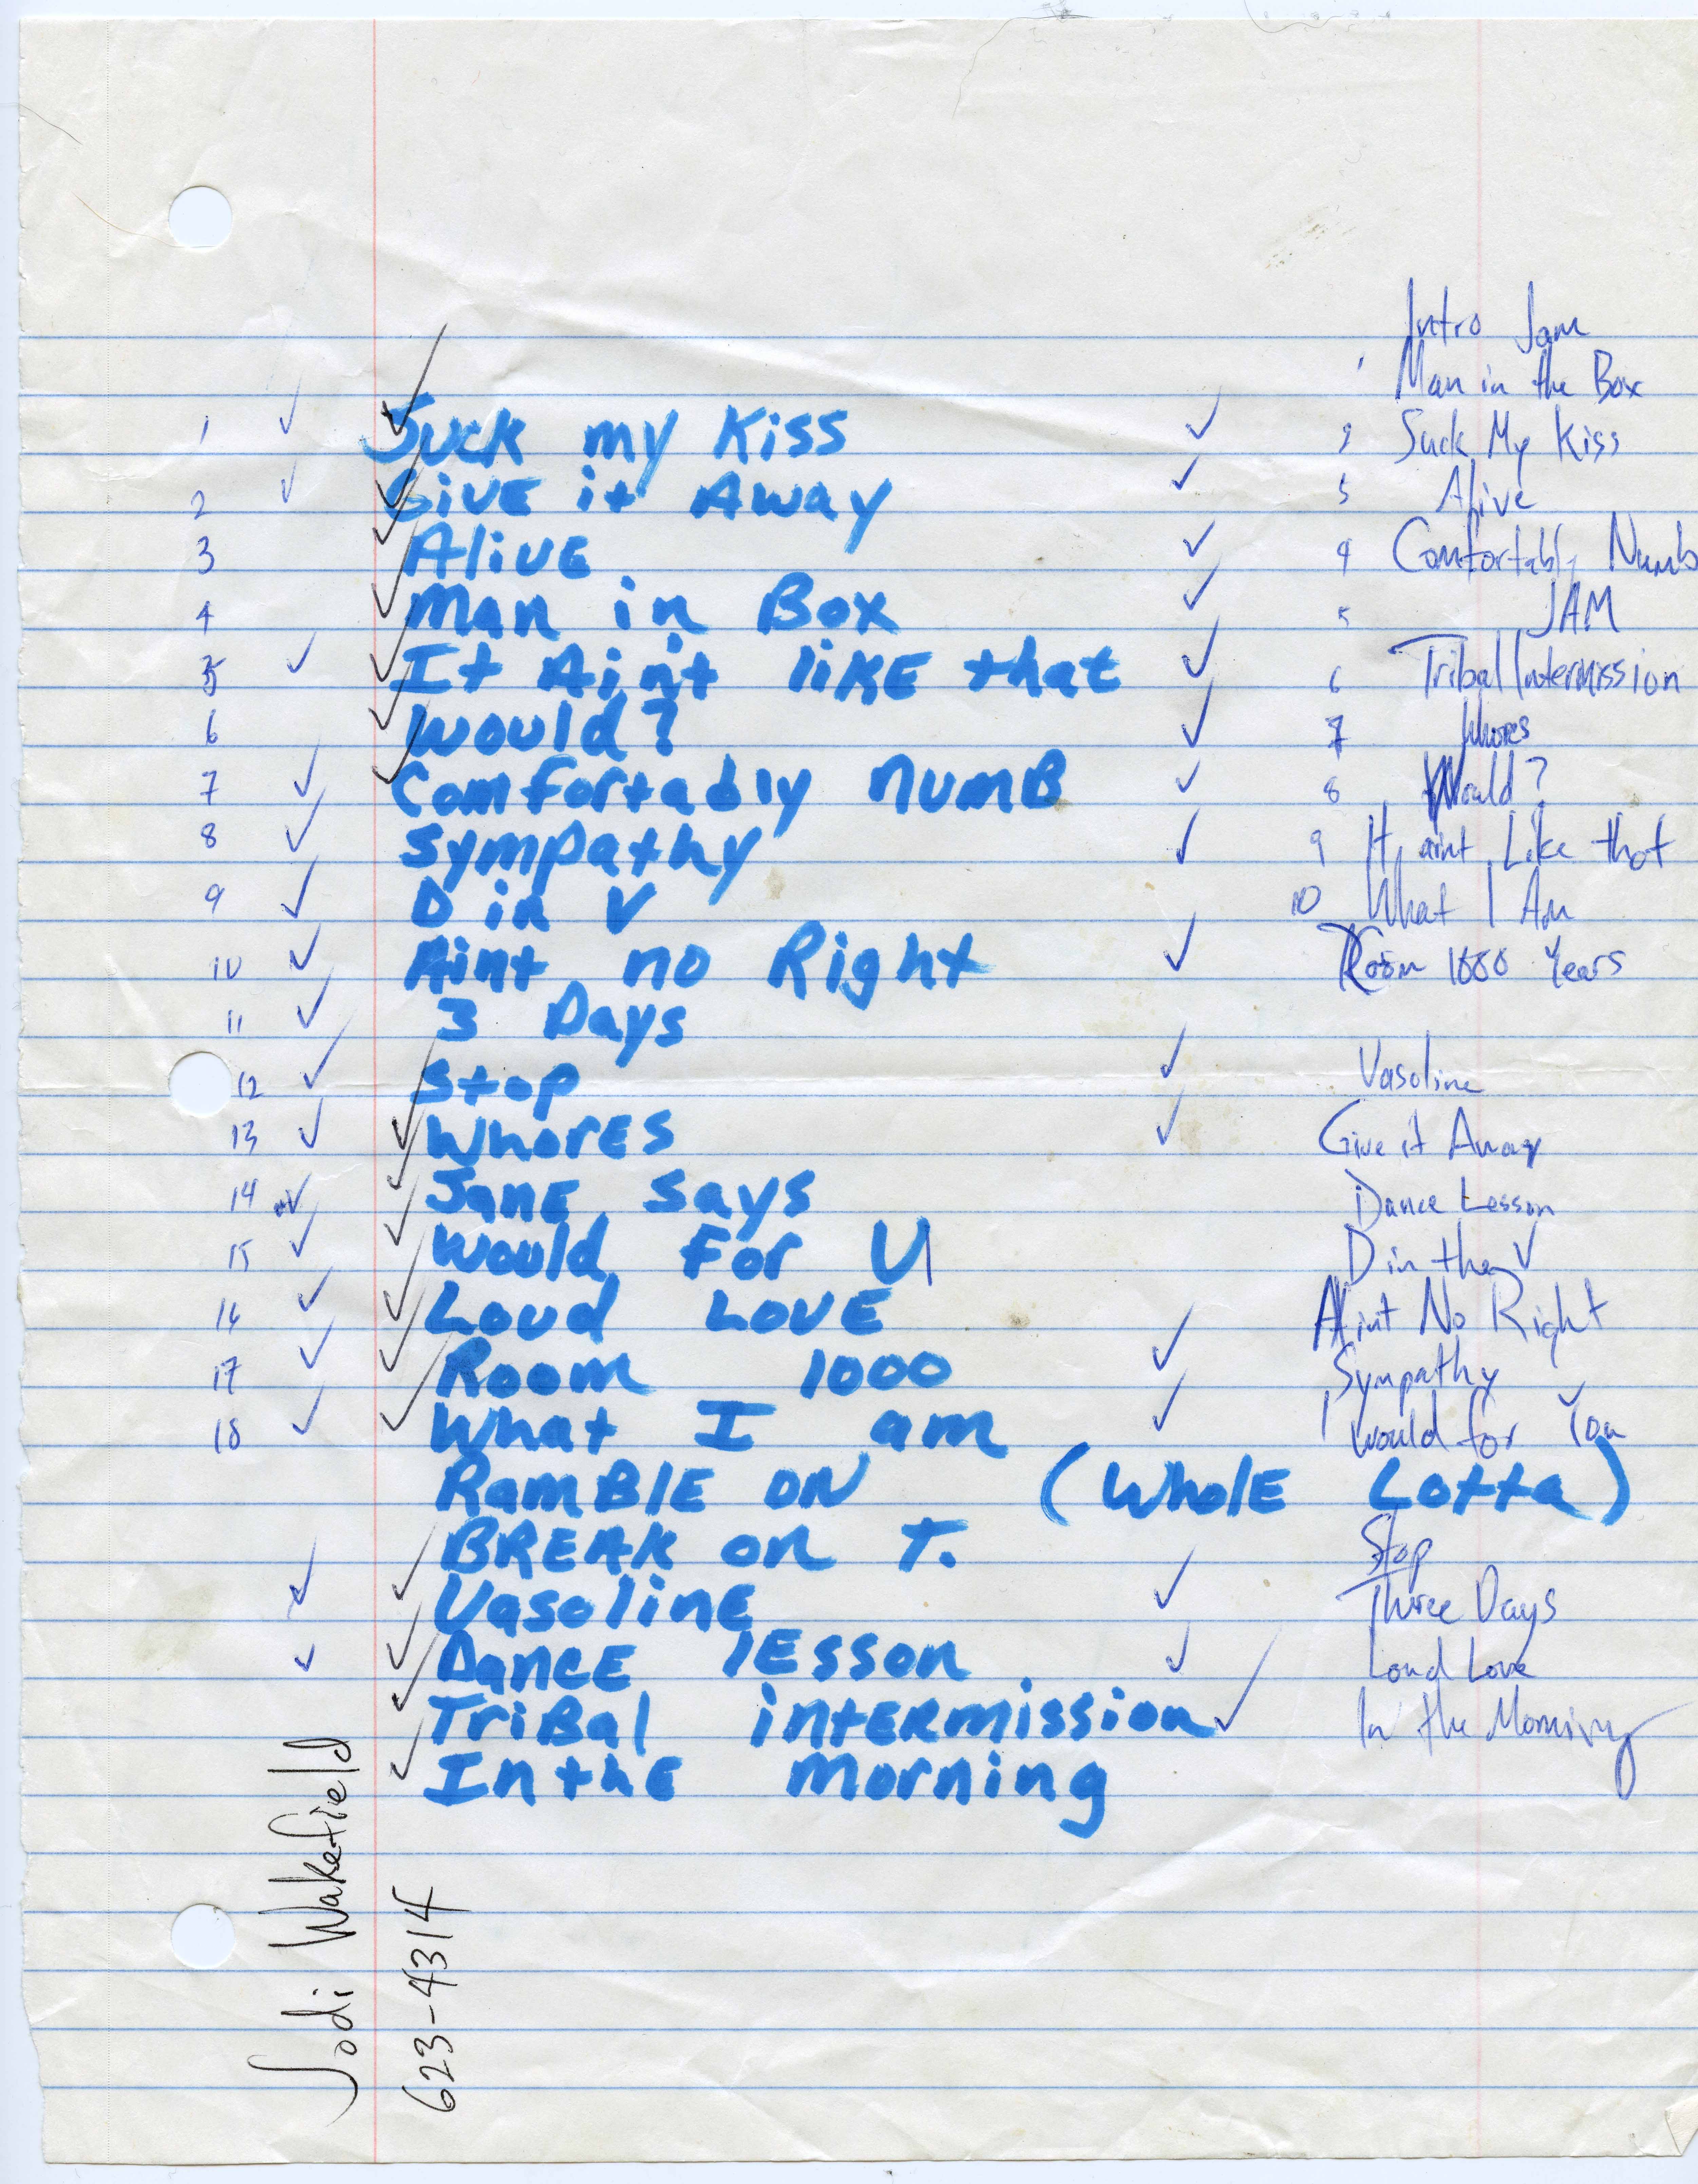 1 Suck my Kiss
2 GiVE it Away
3 AliVE
4 Man in Box
5 It Ain't liKE that
6 Would?
7 Comfortably numB
8 Sympathy
9 D in V
10 Aint no Right
11 3 Days
12 Stop
13 WhorES
14 JanE says
15 Would For U
16 Loud LOVE
17 Room 1000
18 What I am
RamBlE ON (WholE Lotta)
BREAK on T.
VasolinE
DancE lEsson
TriBal intERmission
In thE morning
Intro Jam
1 Man in the Box
2 Suck My Kiss
3 Alive
4 Comfortably Numb
5 JAM
6 Tribal Intermission
7 Whores
8 Would?
9 It aint Like that
10 What I Am
Room 1000 Years
Vasoline
Give it Away
Dance Lesson
D in the V
Aint No Right
Sympathy
I would for You
Stop
Three Days
Loud Love
In the Morning
Jodi Wakefield
623-4314